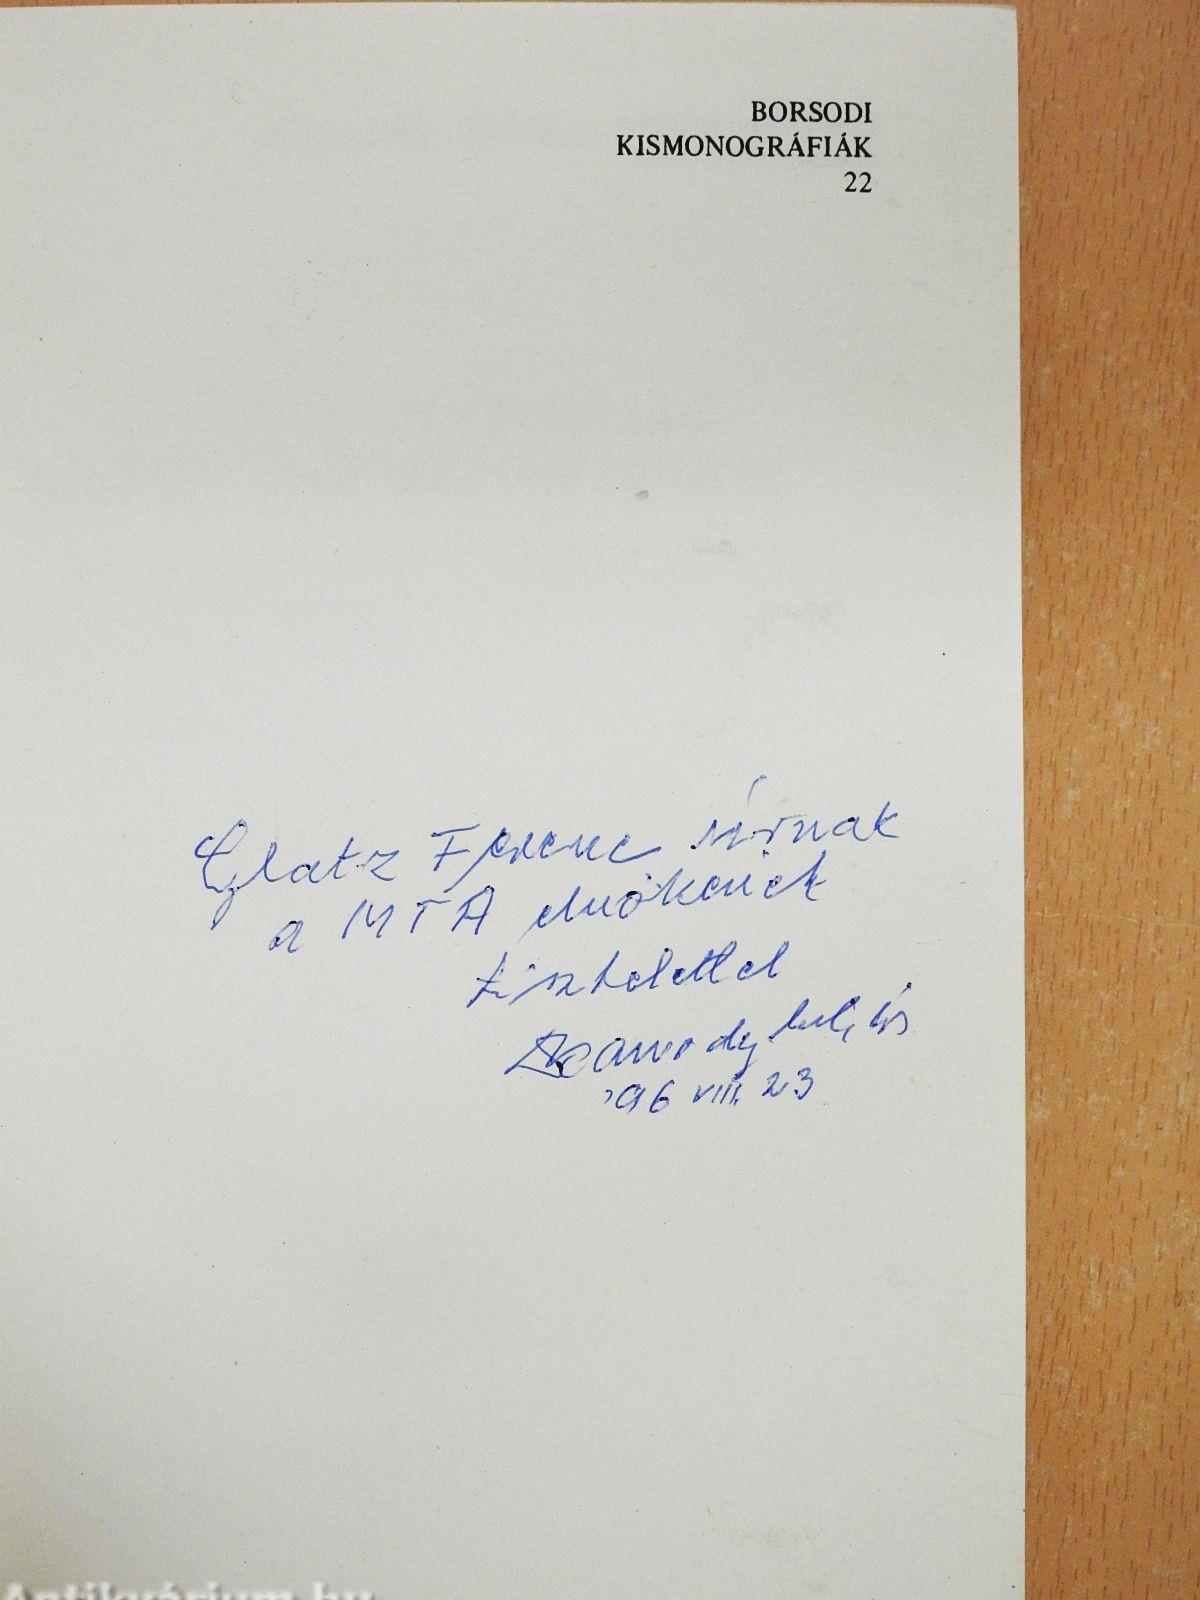 BORSODI
KISMONOGRÁFIÁK
22
Glatz Ferenc úrnak
a MTA elnökének
tisztelettel
'96 VIII. 23
Antikvárium.hu